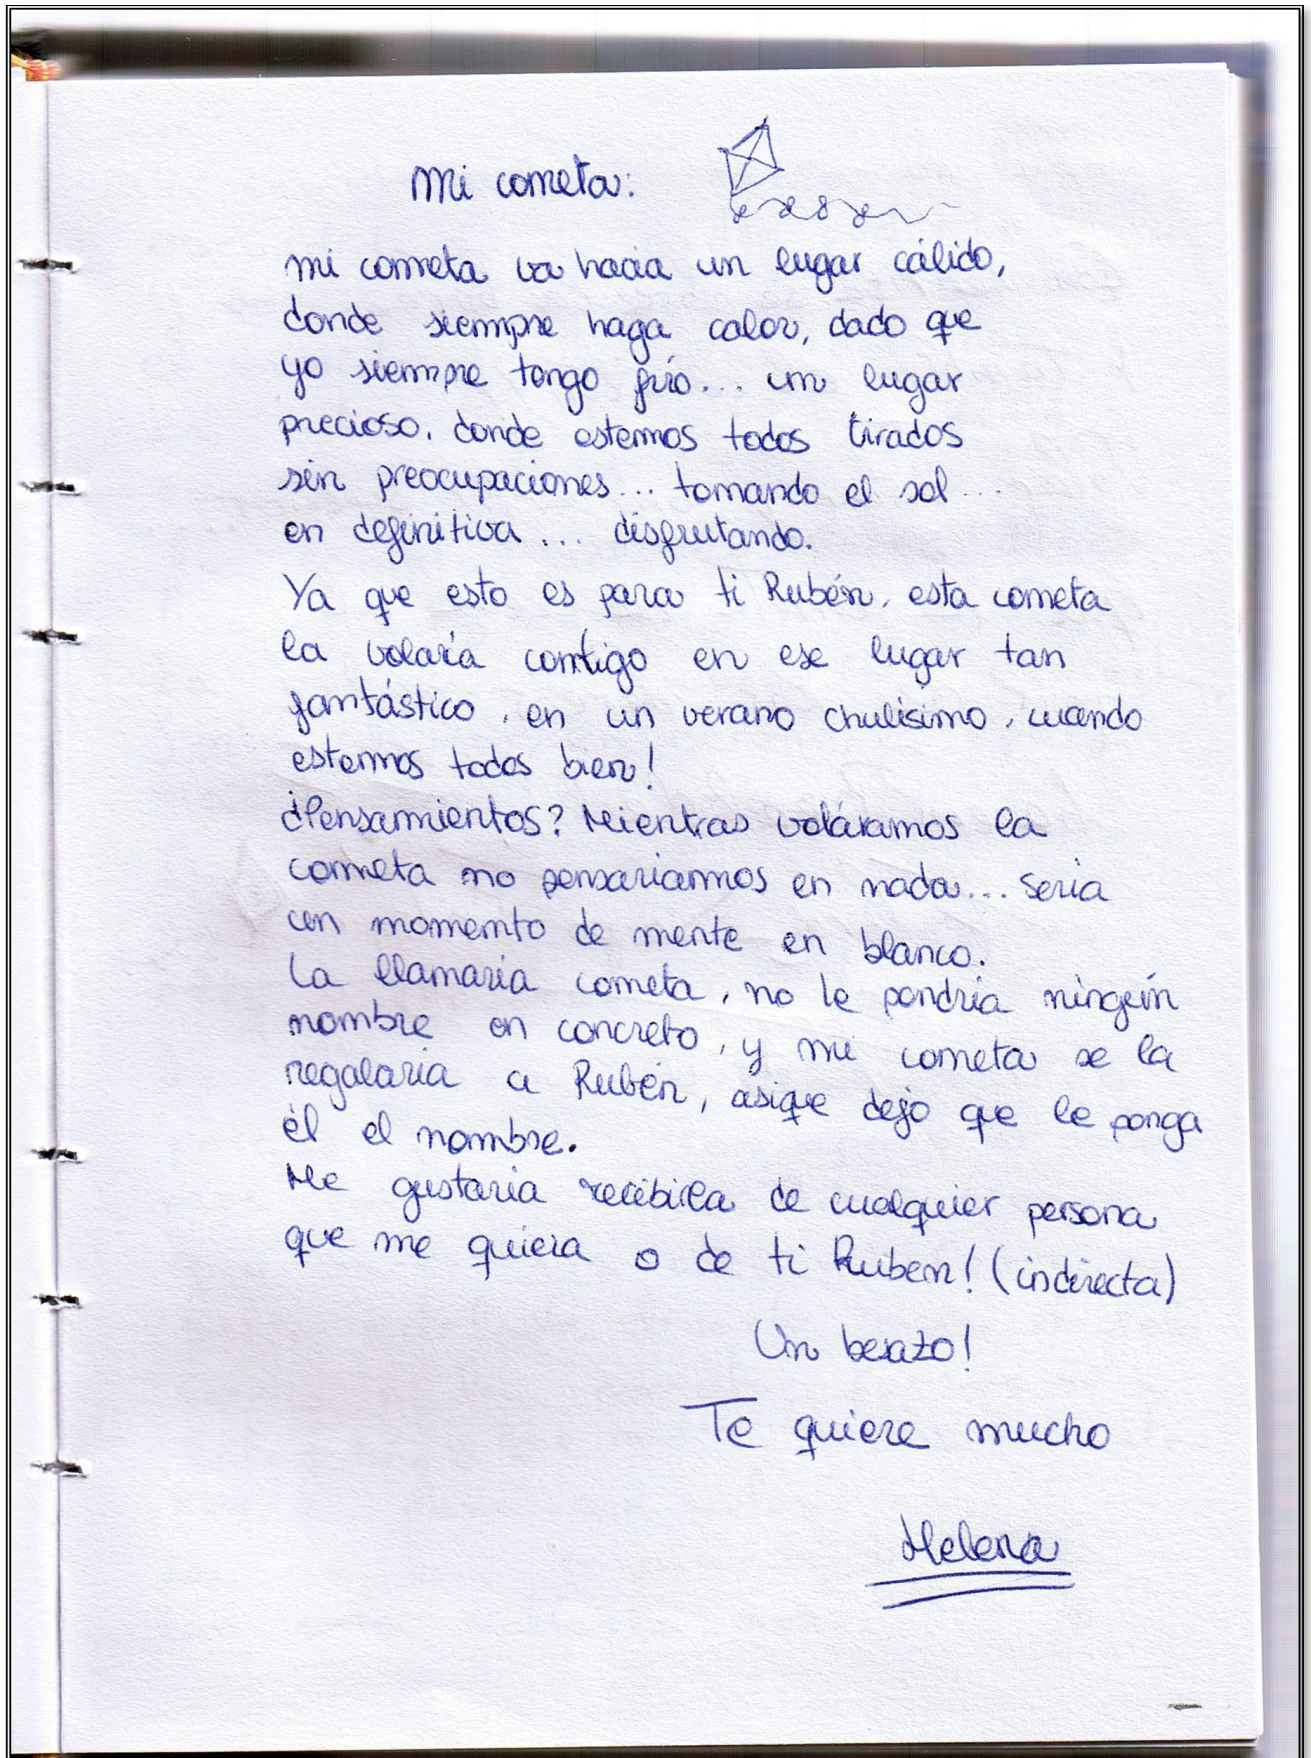 Mi cometa:
mi cometa va hacia un lugar cálido,
donde siempre haga calor, dado que
yo siempre tengo frío... un lugar
precioso, donde estemos todos tirados
sin preocupaciones... tomando el sol...
en definitiva... disfrutando.
Ya que esto es para ti Rubén, esta cometa
la volaría contigo en ese lugar tan
fantástico, en un verano chulísimo, cuando
estemos todos bien!
¿Pensamientos? Mientras voláramos la
cometa no pensaríamos en nada... sería
un momento de mente en blanco.
La llamaría cometa, no le pondría ningún
nombre en concreto, y mi cometa se la
regalaría a Rubén, asique dejo que le ponga
él el nombre.
Me gustaría recibirla de cualquier persona
que me quiera o de ti Ruben! (indirecta)
Un besazo!
Te quiere mucho
Helena